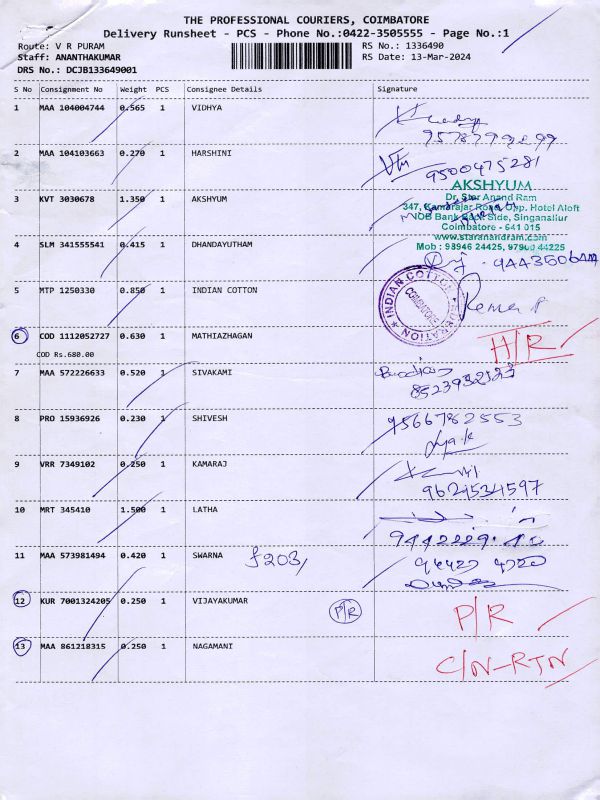 THE PROFESSIONAL COURIERS, COIMBATORE
Delivery Runsheet - PCS - Phone No.:0422-3505555 - Page No.:1
Route: V R PURAM RS No.: 1336490
Staff: ANANTHAKUMAR RS Date: 13-Mar-2024
DRS No.: DCJB133649001
S No Consignment No Weight PCS Consignee Details Signature
1 MAA 104004744 0.565 1 VIDHYA
2 MAA 104103663 0.270 1 HARSHINI
9500475281
3 KVT 3030678 1.350 1 AKSHYUM
AKSHYUM
Dr. Star Anand Ram
347, Kamarajar Road, Opp. Hotel Aloft
IOB Bank Back Side, Singanallur
Coimbatore - 641 015
www.staranandram.com
Mob : 98946 24425, 97900 44225
4 SLM 341555541 0.415 1 DHANDAYUTHAM
5 MTP 1250330 0.850 1 INDIAN COTTON
INDIAN COTTON
COIMBATORE
6 COD 1112052727 0.630 1 MATHIAZHAGAN H/R
COD Rs.680.00
7 MAA 572226633 0.520 1 SIVAKAMI
8 PRO 15936926 0.230 1 SHIVESH 9566782553
9 VRR 7349102 0.250 1 KAMARAJ
9621534597
10 MRT 345410 1.500 1 LATHA
11 MAA 573981494 0.420 1 SWARNA
12 KUR 7001324205 0.250 1 VIJAYAKUMAR P/R P/R
13 MAA 861218315 0.250 1 NAGAMANI C/N-RTN